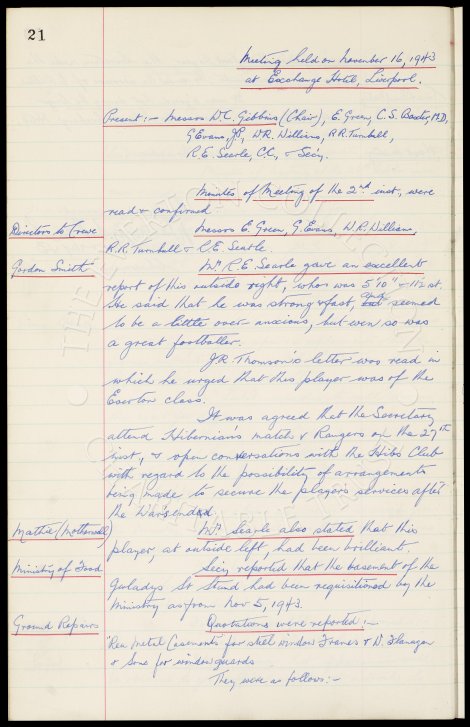 21
Meeting held on November 16, 1943
at Exchange Hotel, Liverpool.
Present:- Messrs W.C. Gibbins (Chair), E. Green, C.S. Baxter, M.D,
G Evans, J.P, W.R. Williams, R.R. Turnbull,
R.E. Searle, C.C, & Secy.
Minutes of Meeting of the 2nd inst, were
read & confirmed
Directors to Crewe
Messrs E. Green, G. Evans, W.R. William,
R.R. Turnbull & R.E. Searle.
Gordon Smith
Mr. R.E. Searle gave an excellent
report of this outside right, who was 5'10" & 11½ st.
He said that he was strong & fast, only seemed
to be a little over anxious, but even so was
a great footballer.
J.R. Thomson's letter was read in
which he urged that this player was of the
Everton class.
It was agreed that the Secretary
attend Hibernian's match v Rangers on the 27th
inst, & open conversations with the Hibs Club
with regard to the possibility of arrangements
being made to secure the players services after
the War's ended.
Mathie (Motherwell)
Mr. Searle also stated that this
player, at outside left, had been brilliant.
Ministry of Food
Secy reported that the basement of the
Guladys St Stand had been requisitioned by the
Ministry as from Nov 5, 1943.
Ground Repairs
Quotations were reported:-
Rea Metal Casements for steel window frames & D. Flanagan
& Sons for window guards
They were as follows:-